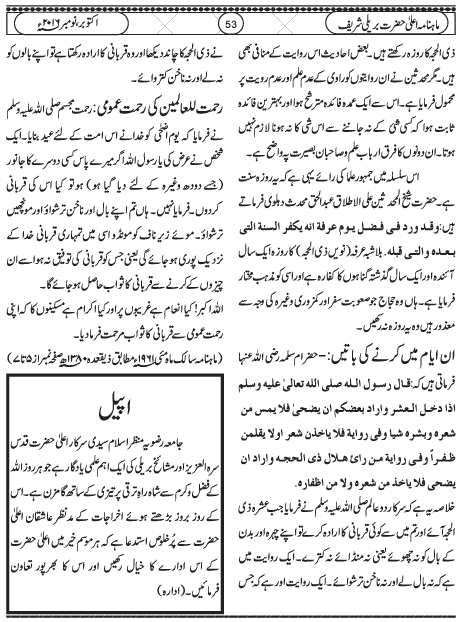 ماہنامہ اعلیٰ حضرت بریلی شریف
53
اکتوبر، نومبر ۲۰۱۶ء
نے ذی الحجہ کا روزہ رکھتے ہیں۔ بعض احادیث اس روایت کے منافی بھی
ہیں۔ مگر محدثین نے ان روایتوں کو راوی کے عدم علم اور عدم رویت پر
محمول فرمایا ہے۔ اس سے ایک عمدہ فائدہ مترشح ہوا اور بہترین فائدہ
ثابت ہوا کہ کسی شئی کے نہ جاننے سے اس شی کا نہ ہونا لازم نہیں
ہوتا۔ ان دونوں کا فرق ارباب علم و صاحبان بصیرت پہ واضح ہے۔
اس سلسلہ میں جمہور علما کی رائے یہی ہے کہ یہ روزہ سنت
ہے۔ حضرت شیخ المحدثین علی الاطلاق عبد الحق محدث دہلوی فرماتے
ہیں: وقد ورد فی فضل یوم عرفة انه یکفر السنة التی
بعده والتی قبله. بلاشبہ عرفہ (نویں ذی الحجہ) کا روزہ ایک سال
آئندہ اور ایک سال گذشتہ گناہوں کا کفارہ ہے اور اسی کو مذہب مختار
فرمایا ہے۔ ہاں وہ حجاج جو صعوبت سفر اور کمزوری وغیرہ کی وجہ سے
معذور ہیں وہ یہ روزہ نہ رکھیں۔
ان ایام میں کرنے کی باتیں:۔ حضرت ام سلمہ رضی اللہ عنہا
فرماتی ہیں کہ: قال رسول الله صلی الله تعالیٰ علیه وسلم
اذا دخل العشر واراد بعضکم ان یضحی فلا یمس من
شعره وبشره شیا وفی روایة فلا یاخذن شعر اولا یقلمن
ظفراً وفی روایة من رائ هلال ذی الحجه واراد ان
یضحی فلا یاخذ من شعره ولا من اظفاره.
خلاصہ یہ ہے کہ سرکار دو عالم صلی اللہ علیہ وسلم نے فرمایا جب عشرہ ذی
الحجہ آئے اور تم میں سے کوئی قربانی کا ارادہ کرے تو اپنے چہرہ اور بدن
کے بال کو نہ چھوئے یعنی نہ منڈائے نہ کترے۔ ایک روایت میں
ہے کہ نہ بال لے اور نہ ناخن ترشوائے۔ ایک روایت اور ہے کہ جس
نے ذی الحجہ کا چاند دیکھا اور وہ قربانی کا ارادہ رکھتا ہے تو اپنے بالوں کو
نہ لے اور نہ ناخن کتروائے۔
رحمت للعالمین کی رحمت عمومی: رحمت مجسم صلی اللہ علیہ وسلم
نے فرمایا کہ یوم اضحیٰ کو خدا نے اس امت کے لئے عید بنایا۔ ایک
شخص نے عرض کی یا رسول اللہ اگر میرے پاس کسی دوسرے کا جانور
(جسے دودھ وغیرہ کے لئے دیا گیا ہو) ہو تو کیا اس کی قربانی
کردوں۔ فرمایا نہیں۔ ہاں تم اپنے بال اور ناخن ترشواؤ اور مونچھیں
ترشواؤ۔ موئے زیر ناف کو مونڈو اسی میں تمہاری قربانی خدا کے
نزدیک پوری ہو جائے گی یعنی جس کو قربانی کی توفیق نہ ہو اسے ان
چیزوں کے کرنے سے قربانی کا ثواب حاصل ہو جائے گا۔
اللہ اکبر! کیا انعام ہے غریبوں پر اور کیا اکرام ہے مسکینوں کا کہ اپنی
رحمت عمومی سے قربانی کا ثواب مرحمت فرما دیا۔
(ماہنامہ سالک ماہ مئی ۱۹۶۱ء مطابق ذیقعدہ ۱۳۸۰ھ صفحہ نمبر از ۵ تا ۷)
اپیل
جامعہ رضویہ منظر اسلام سیدی سرکار اعلیٰ حضرت قدس
سرہ العزیز اور مشائخ بریلی کی ایک اہم علمی یادگار ہے جو ہر روز اللہ
کے فضل و کرم سے شاہراہ ترقی پر تیزی کے ساتھ گامزن ہے۔ اس
کے روز بروز بڑھتے ہوئے اخراجات کے مدنظر عاشقان اعلیٰ
حضرت سے پر خلوص استدعا ہے کہ ہر موسم خیر میں اعلیٰ حضرت
کے اس ادارے کا خیال رکھیں اور اس کا بھرپور تعاون
فرمائیں۔ (ادارہ)